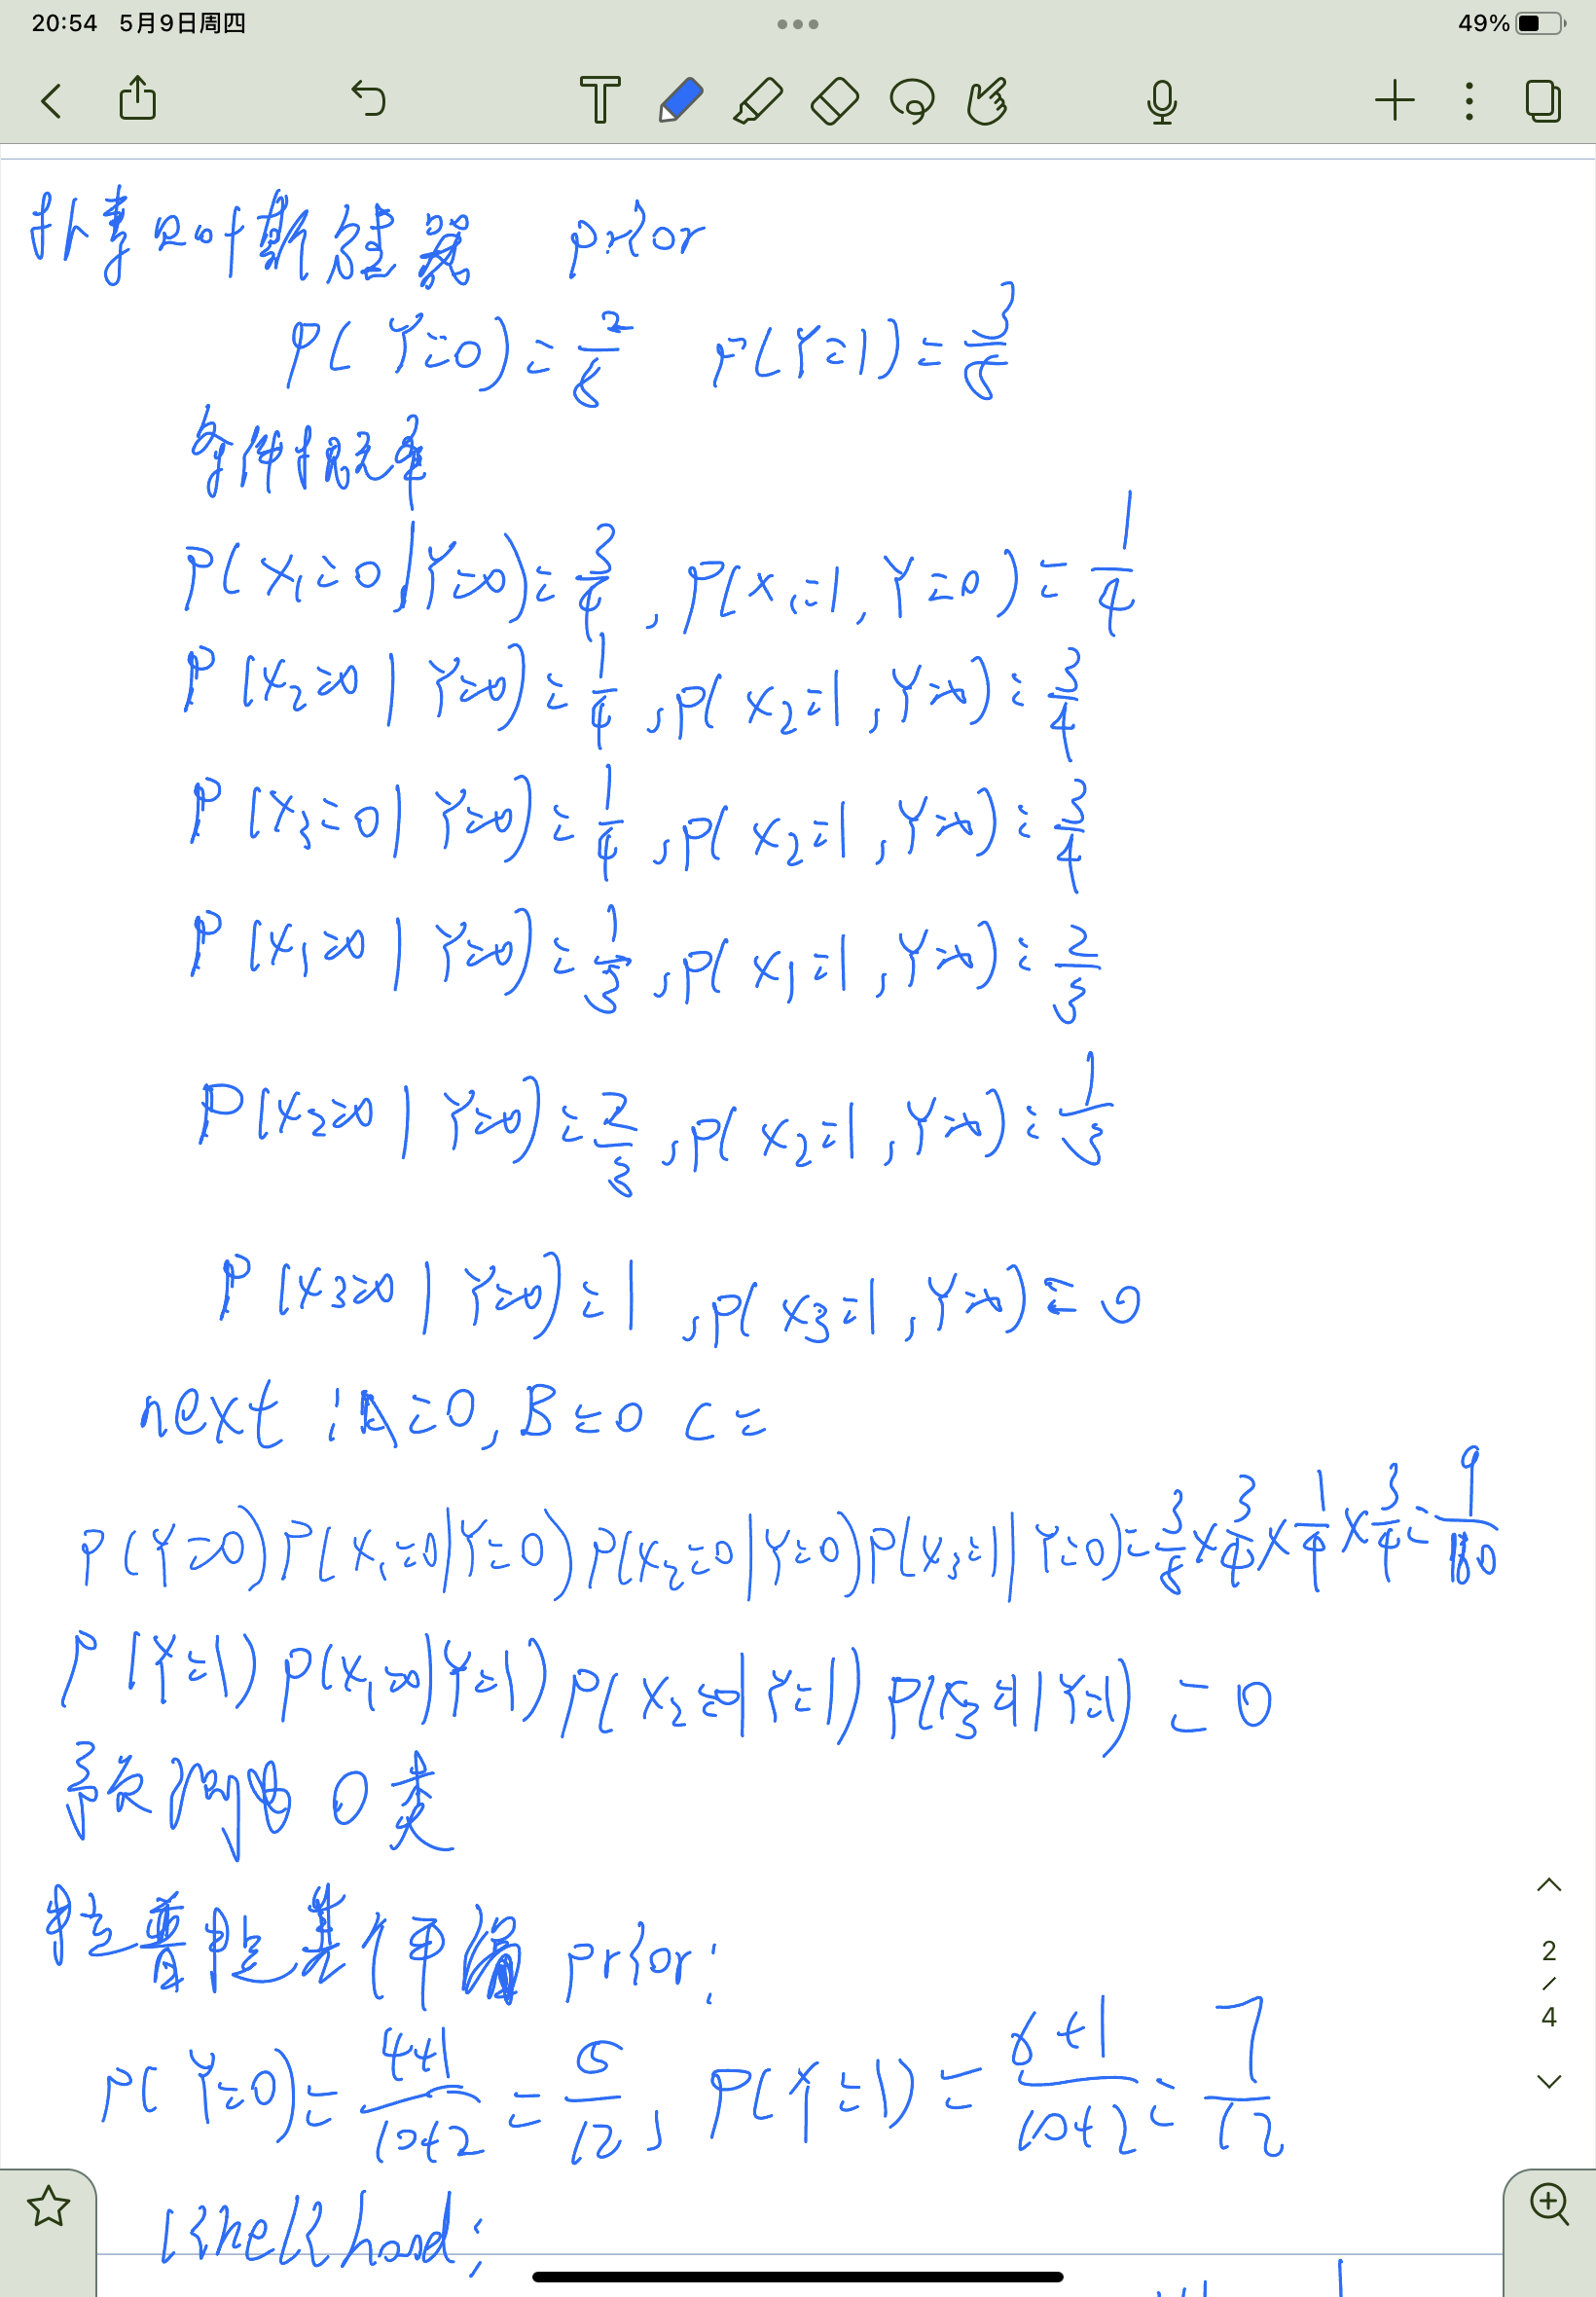 20:54 5月9日周四
49%
T
朴素贝叶斯 器 prior
P(Y=0)=2/8 P(Y=1)=3/8
条件概率
P(x₁=0|Y=0)=3/4, P(x₁=1,Y=0)=1/4
P(x₂=0|Y=0)=1/4, P(x₂=1,Y=0)=3/4
P(x₃=0|Y=0)=1/4, P(x₂=1,Y=0)=3/4
P(x₁=0|Y=0)=1/3, P(x₁=1,Y=0)=2/3
P(x₂=0|Y=0)=2/3, P(x₂=1,Y=0)=1/3
P(x₃=0|Y=0)=1, P(x₃=1,Y=0)=0
next: A=0, B=0 C=
P(Y=0)P(x₁=0|Y=0)P(x₂=0|Y=0)P(x₃=1|Y=0)=3/8×3/4×1/4×3/4=9/
P(Y=1)P(x₁=0|Y=1)P(x₂=0|Y=1)P(x₃=1|Y=1)=0
预测为0类
拉普拉 prior:
P(Y=0)=4+1/10+2=5/12, P(Y=1)=6+1/10+2=7/12
2
/
4